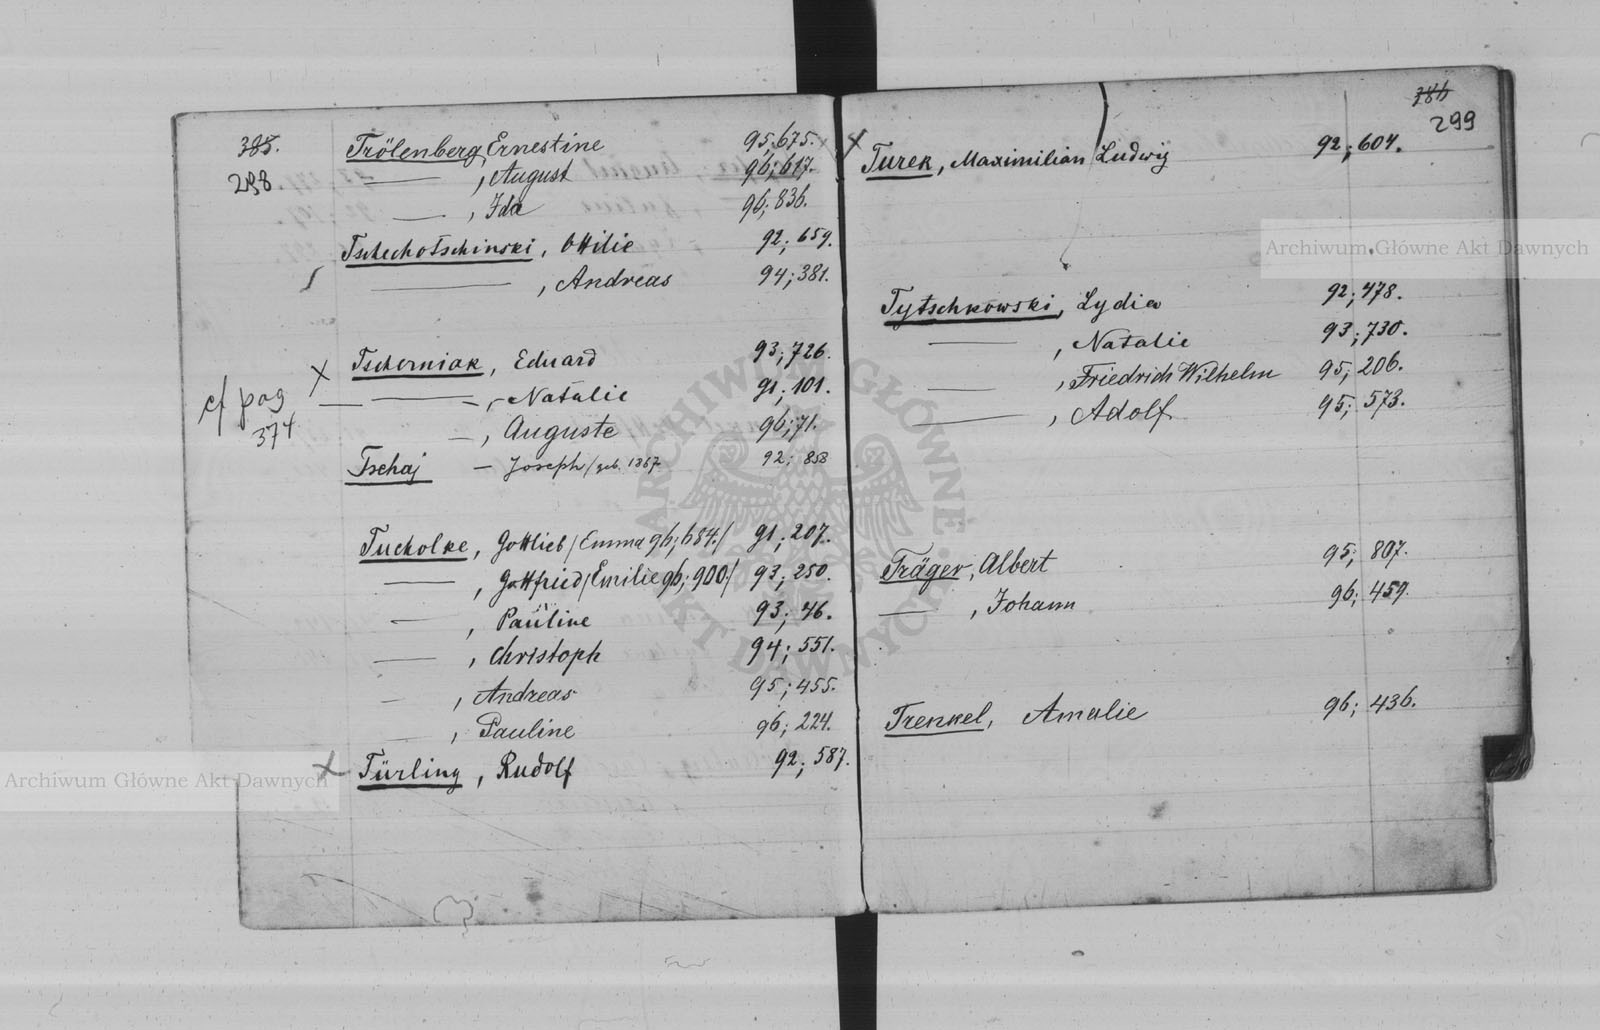 385.
298
Trölenberg, Ernestine 95; 675.
—— , August 96; 617.
—— , Ida 96; 836.
Tschechotschinski, Ottilie 92; 659.
—— , Andreas 94; 381.
X Tscherniak, Eduard 93; 726.
cf pag 374
—— , Natalie 91; 101.
— , Auguste 96; 71.
Tschaj — Joseph / geb. 1867 92; 858
Tucholke, Gottlieb / Emma 96; 684./ 91; 207.
—— , Gottfried / Emilie 96; 900./ 93; 250.
—— , Pauline 93; 46.
—— , Christoph 94; 551.
— , Andreas 95; 455.
— , Pauline 96; 224.
X Türling, Rudolf 92; 587.
386
299
X Turek, Maximilian Ludwig 92; 604.
Tytschkowski, Lydia 92; 478.
—— , Natalie 93; 730.
—— , Friedrich Wilhelm 95; 206.
—— , Adolf 95; 573.
Träger, Albert 95; 807.
—— , Johann 96; 459.
Trenkel, Amalie 96; 436.
Archiwum Główne Akt Dawnych
Archiwum Główne Akt Dawnych
ARCHIWUM GŁÓWNE AKT DAWNYCH